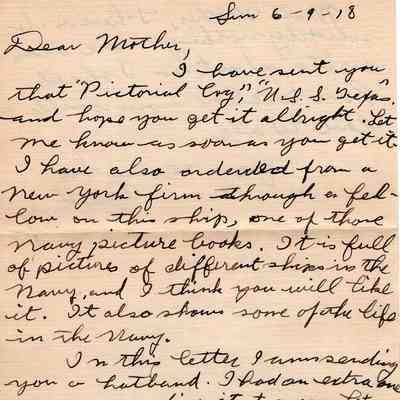 Sun 6-9-18
Dear Mother,
I have sent you
that "Pictorial Log", "U.S.S. Texas",
and hope you get it allright. Let
me know as soon as you get it.
I have also ordended from a
New York firm through a fel-
low on this ship, one of those
Navy picture books. It is full
of pictures of different ships in the
Navy, and I think you will like
it. It also shows some of the life
in the Navy.
In this letter I am sending
you a hatband. I had an extra one